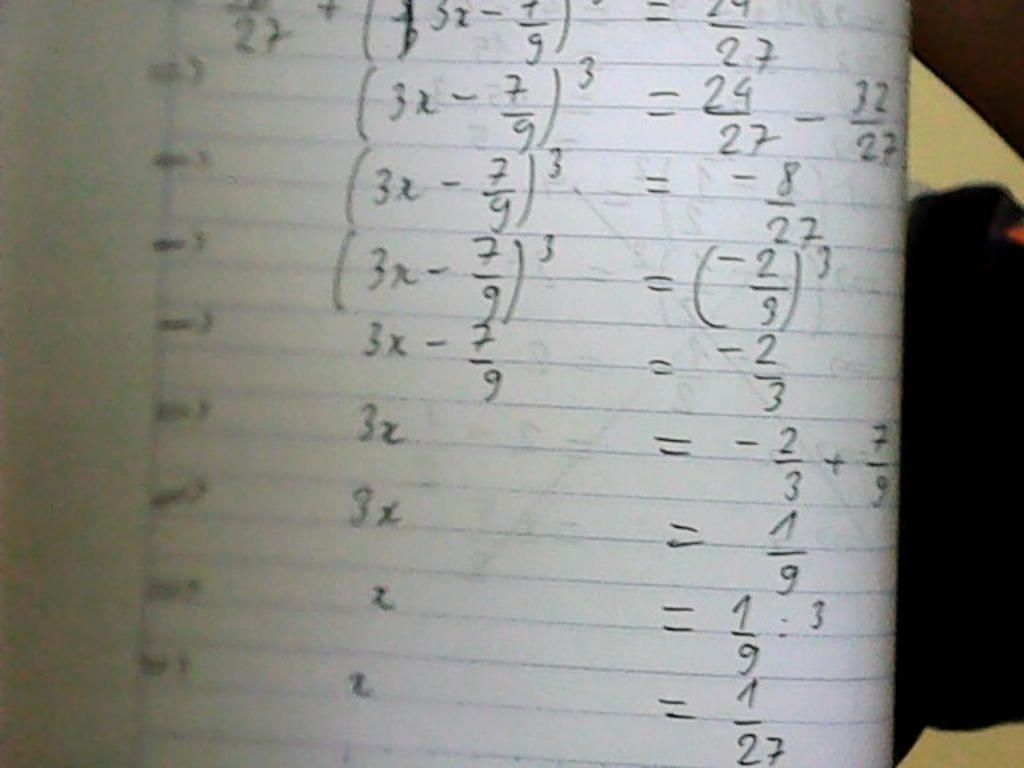 27 + (3x - 7/9)³ = 24/27
=> (3x - 7/9)³ = 24/27 - 32/27
=> (3x - 7/9)³ = - 8/27
=> (3x - 7/9)³ = (-2/3)³
=> 3x - 7/9 = -2/3
=> 3x = - 2/3 + 7/9
=> 3x = 1/9
=> x = 1/9 : 3
=> x = 1/27